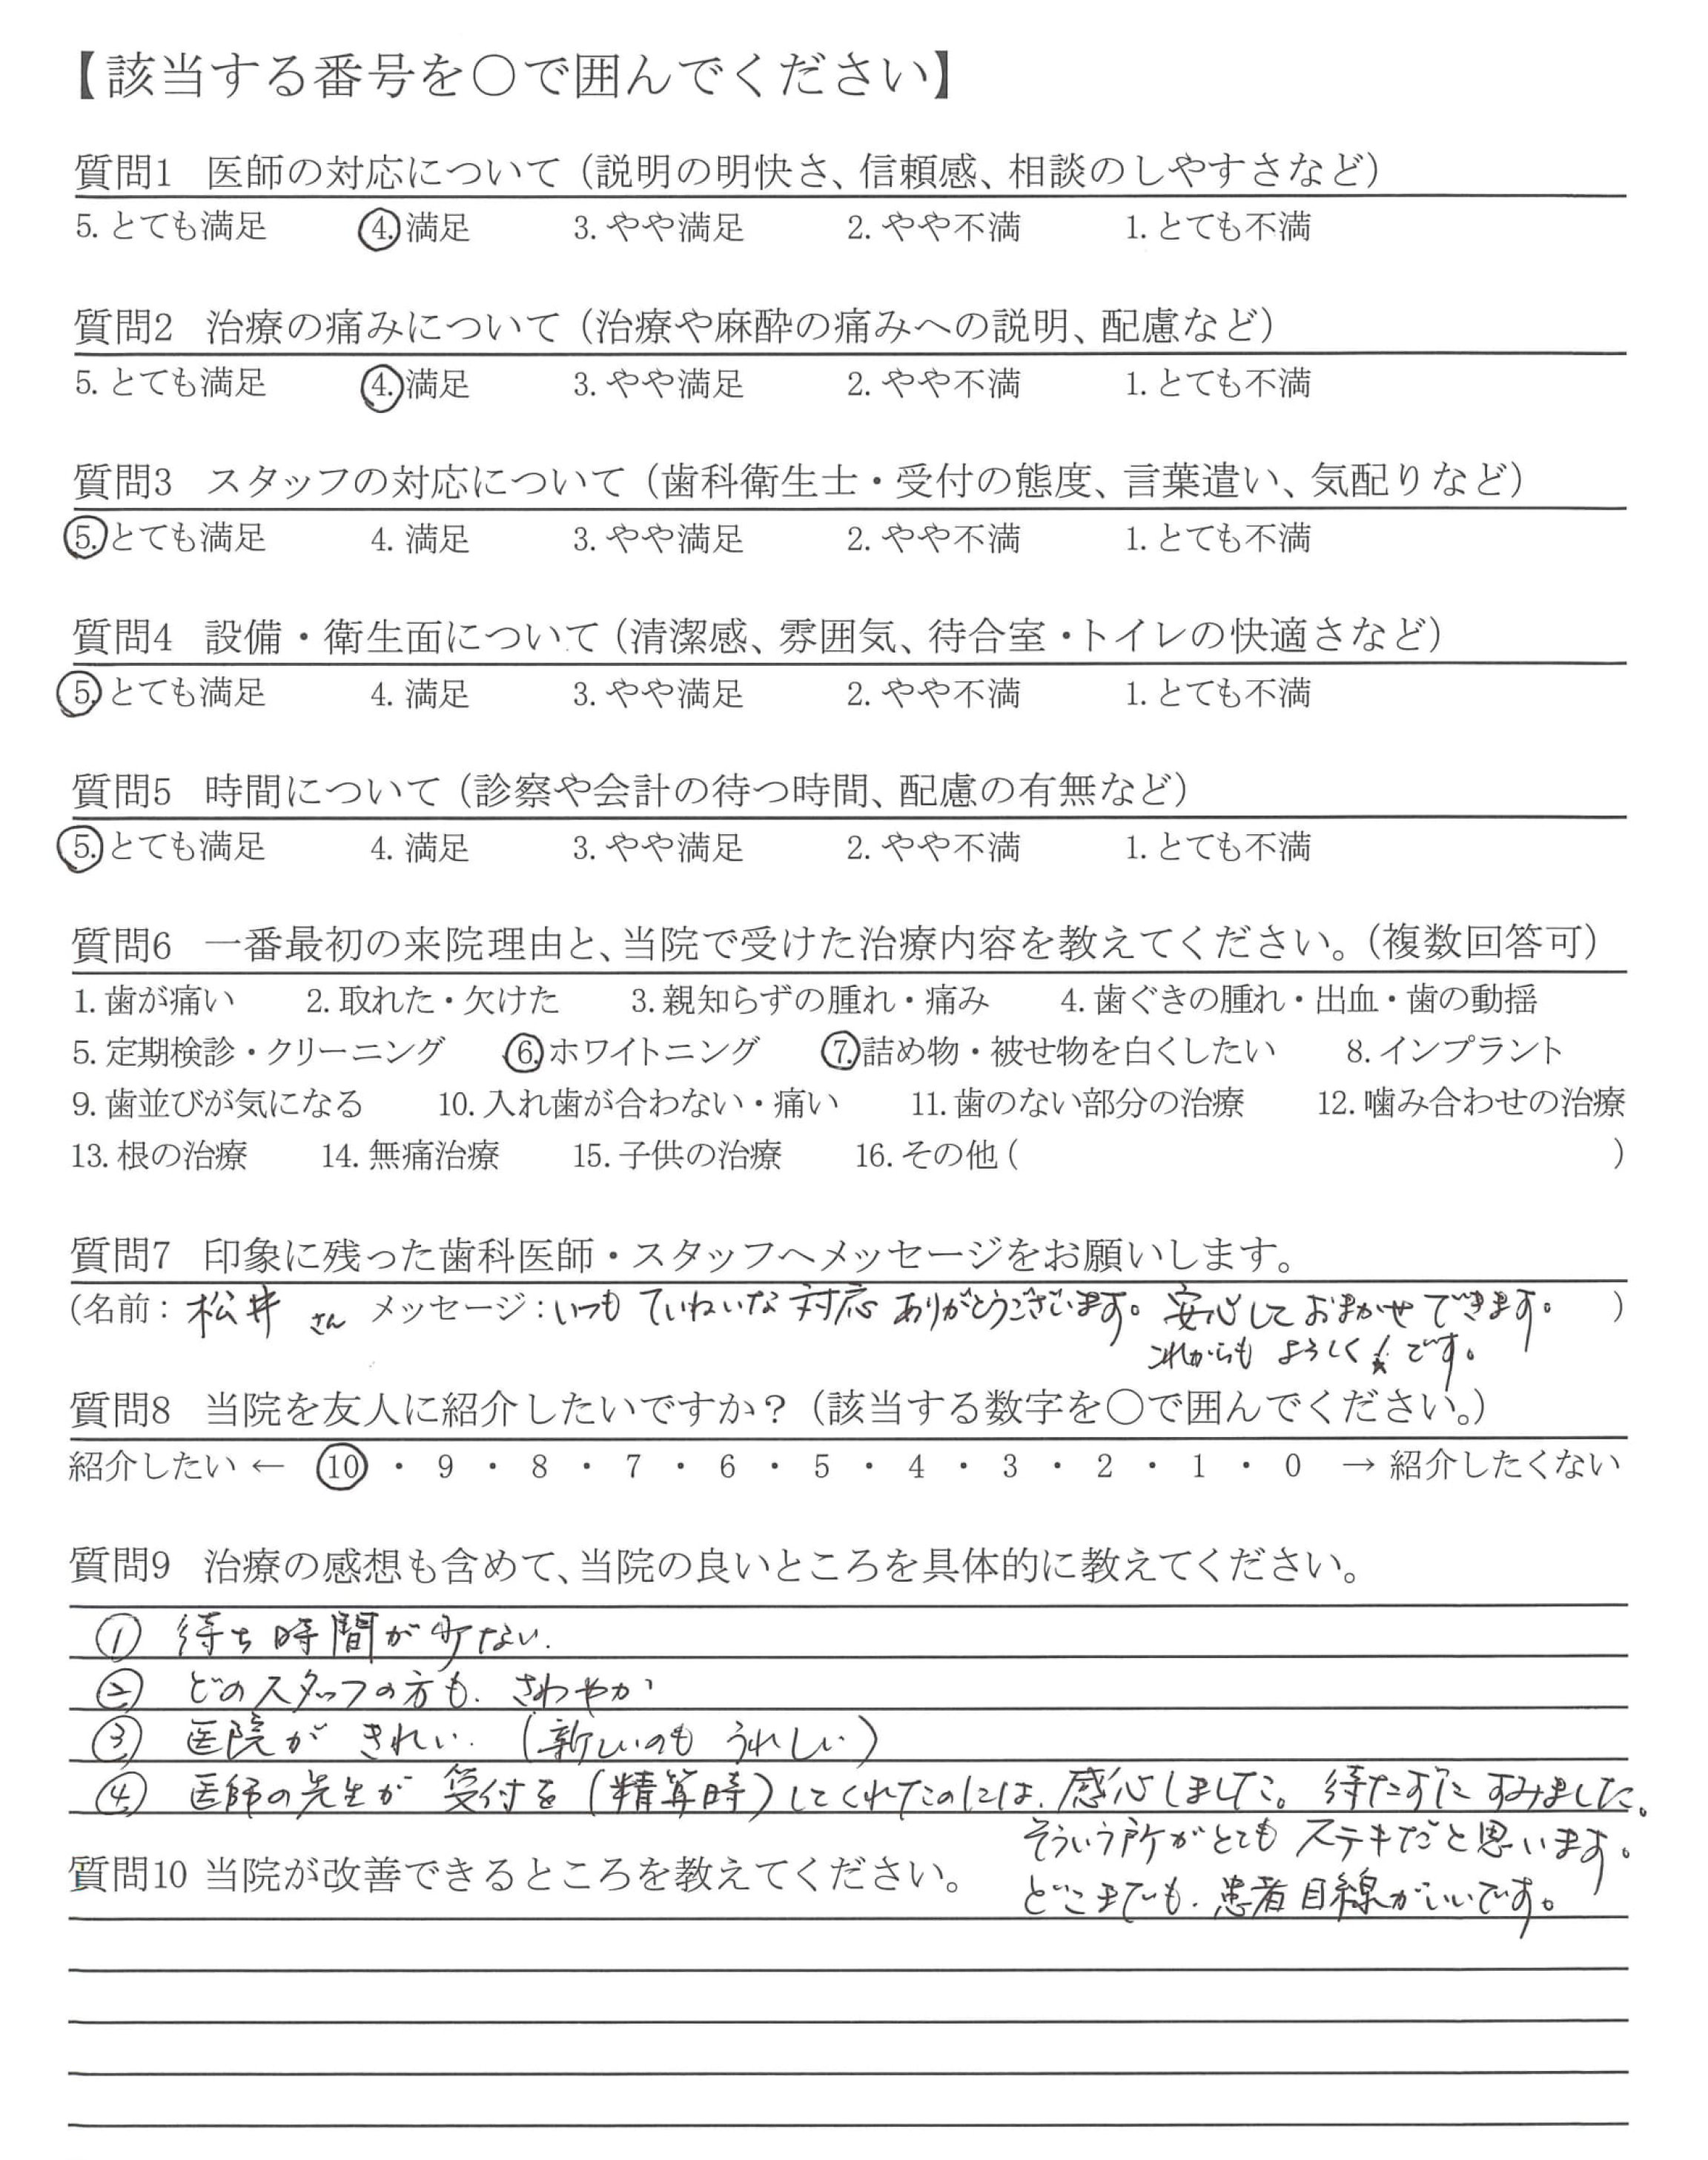 【該当する番号を○で囲んでください】
質問1 医師の対応について（説明の明快さ、信頼感、相談のしやすさなど）
5. とても満足 4. 満足 3. やや満足 2. やや不満 1. とても不満
質問2 治療の痛みについて（治療や麻酔の痛みへの説明、配慮など）
5. とても満足 4. 満足 3. やや満足 2. やや不満 1. とても不満
質問3 スタッフの対応について（歯科衛生士・受付の態度、言葉遣い、気配りなど）
5. とても満足 4. 満足 3. やや満足 2. やや不満 1. とても不満
質問4 設備・衛生面について（清潔感、雰囲気、待合室・トイレの快適さなど）
5. とても満足 4. 満足 3. やや満足 2. やや不満 1. とても不満
質問5 時間について（診察や会計の待つ時間、配慮の有無など）
5. とても満足 4. 満足 3. やや満足 2. やや不満 1. とても不満
質問6 一番最初の来院理由と、当院で受けた治療内容を教えてください。（複数回答可）
1. 歯が痛い 2. 取れた・欠けた 3. 親知らずの腫れ・痛み 4. 歯ぐきの腫れ・出血・歯の動揺
5. 定期検診・クリーニング 6. ホワイトニング 7. 詰め物・被せ物を白くしたい 8. インプラント
9. 歯並びが気になる 10. 入れ歯が合わない・痛い 11. 歯のない部分の治療 12. 噛み合わせの治療
13. 根の治療 14. 無痛治療 15. 子供の治療 16. その他 ( )
質問7 印象に残った歯科医師・スタッフへメッセージをお願いします。
（名前：松井 さん メッセージ：いつも ていねいな 対応 ありがとうございます。安心して おまかせ できます。 ）
これからも よろしく！です。
質問8 当院を友人に紹介したいですか？（該当する数字を○で囲んでください。）
紹介したい ← 10 ・ 9 ・ 8 ・ 7 ・ 6 ・ 5 ・ 4 ・ 3 ・ 2 ・ 1 ・ 0 → 紹介したくない
質問9 治療の感想も含めて、当院の良いところを具体的に教えてください。
① 待ち時間が少ない.
② どのスタッフの方も. さわやか
③ 医院が きれい. （新しいのも うれしい）
④ 医師の先生が 受付を（精算時）してくれたのには. 感心しました。 待たずに すみました。
そういう所がとても ステキだと思います。
どこまでも. 患者目線がいいです。
質問10 当院が改善できるところを教えてください。